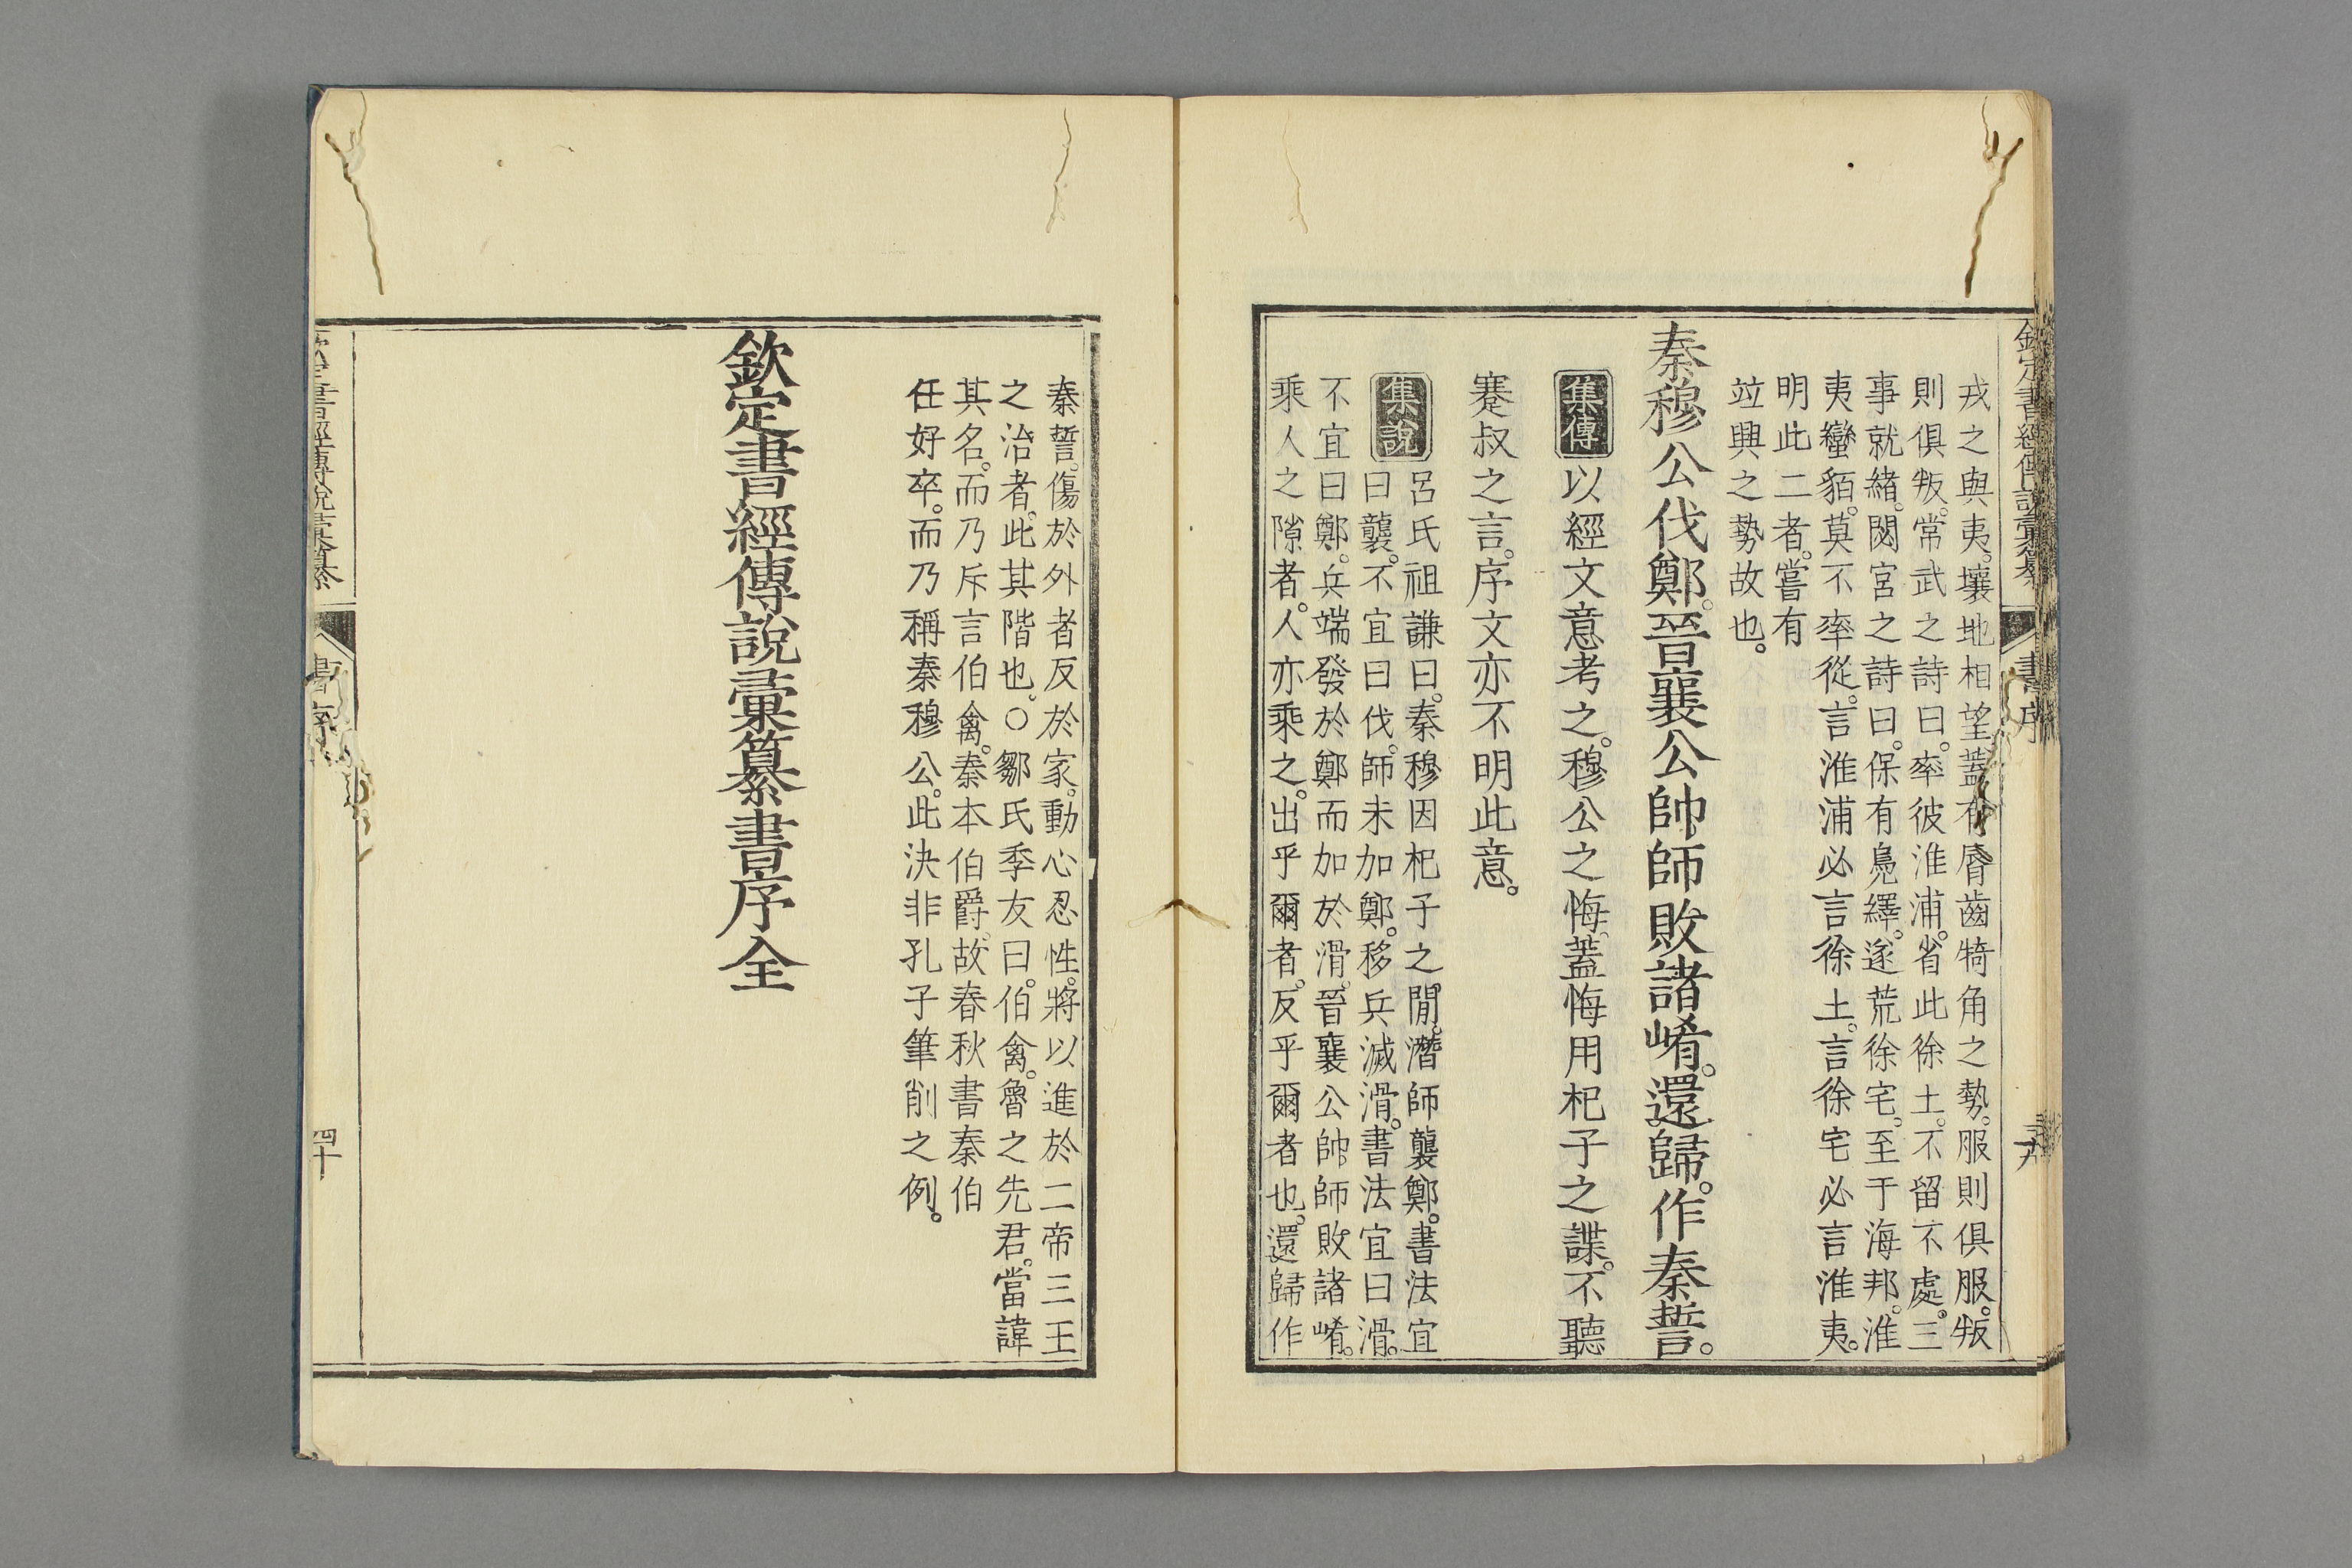 欽定書經傳說彙纂 書序 三九
戎之與夷。壤地相望。蓋有脣齒犄角之勢。服則俱服。叛
則俱叛。常武之詩曰。率彼淮浦。省此徐土。不留不處。三
事就緒。閟宮之詩曰。保有鳧繹。遂荒徐宅。至于海邦。淮
夷蠻貊。莫不率從。言淮浦必言徐土。言徐宅必言淮夷。
明此二者。嘗有
竝興之勢故也。
秦穆公伐鄭。晉襄公帥師敗諸崤。還歸。作秦誓。
集傳 以經文意考之。穆公之悔。蓋悔用杞子之諜。不聽
蹇叔之言。序文亦不明此意。
集說 呂氏祖謙曰。秦穆因杞子之閒。潛師襲鄭。書法宜
曰襲。不宜曰伐。師未加鄭。移兵滅滑。書法宜曰滑。
不宜曰鄭。兵端發於鄭而加於滑。晉襄公帥師敗諸崤。
乘人之隙者。人亦乘之。出乎爾者。反乎爾者也。還歸作
秦誓。傷於外者反於家。動心忍性。將以進於二帝三王
之治者。此其階也。○鄒氏季友曰。伯禽。魯之先君。當諱
其名。而乃斥言伯禽。秦本伯爵。故春秋書秦伯
任好卒。而乃稱秦穆公。此決非孔子筆削之例。
欽定書經傳說彙纂書序全
欽定書經傳說彙纂 書序 四十